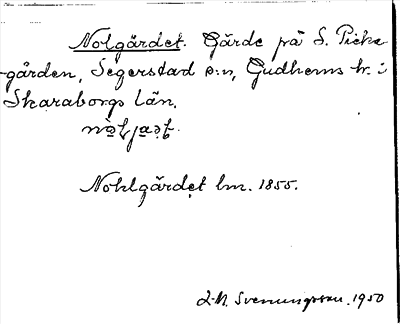 Nolgärdet. Gärde på S. Picka-
gården, Segerstad s:n, Gudhems hr. i
Skaraborgs län.
Nohlgärdet lm. 1855.
Svenungsson. 1950